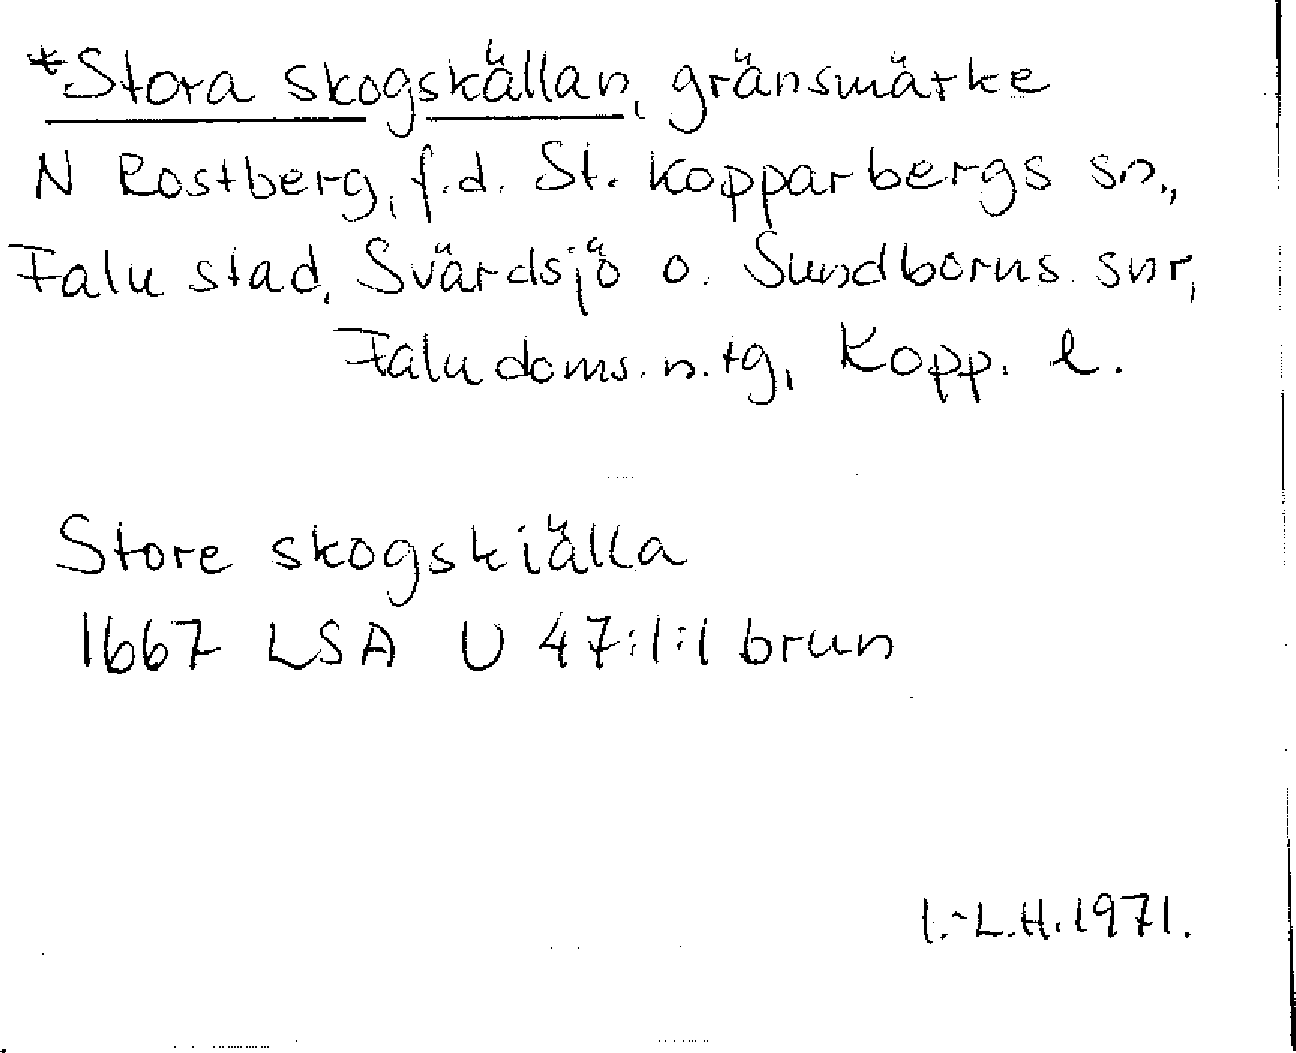 *Stora skogskällan, gränsmärke
N Rostberg, f.d. St. Kopparbergs sn.,
Falu stad, Svärdsjö o. Sundborns snr,
Falu doms. n. tg, Kopp. l.
Store skogskiälla
1667 LSA U 47:1:1 brun
I.-L.H. 1971.